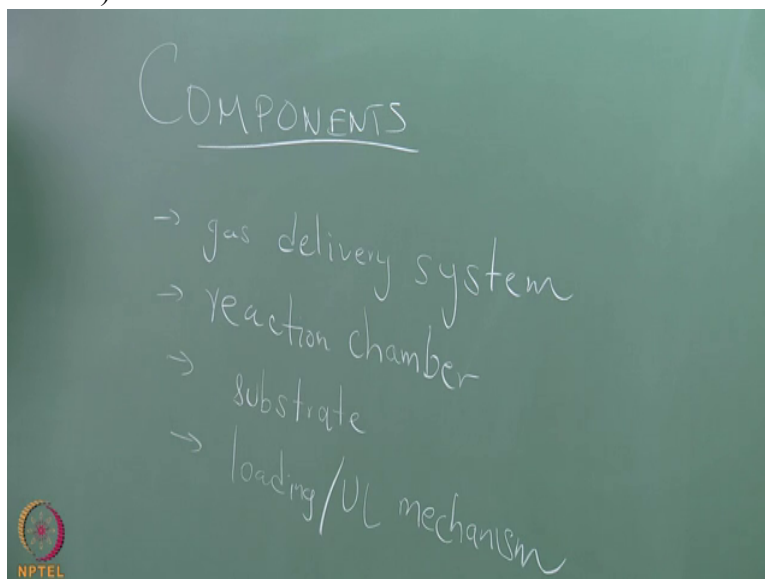 COMPONENTS
→ gas delivery system
→ reaction chamber
→ substrate
→ loading/UL mechanism
NPTEL